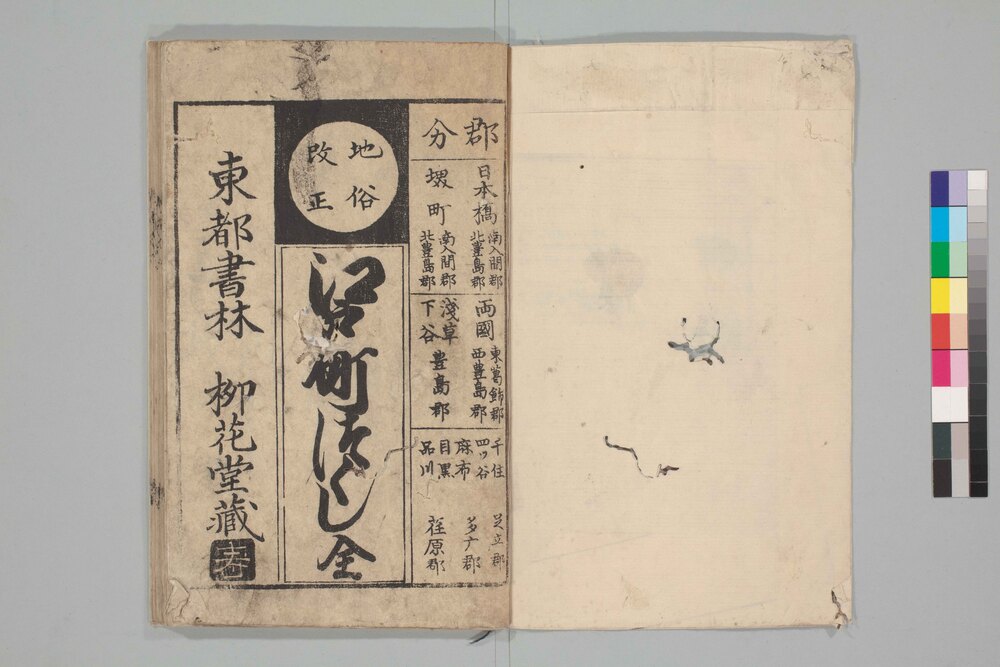 郡分
日本橋 南入間郡 北豊島郡
堺町 南入間郡 北豊島郡
両國 東葛飾郡 西豊島郡
淺草
下谷 豊島郡
千住 足立郡
四ツ谷
麻布 多广郡
目黒
品川 荏原郡
地俗
改正
江戸町づくし全
東都書林 柳花堂藏